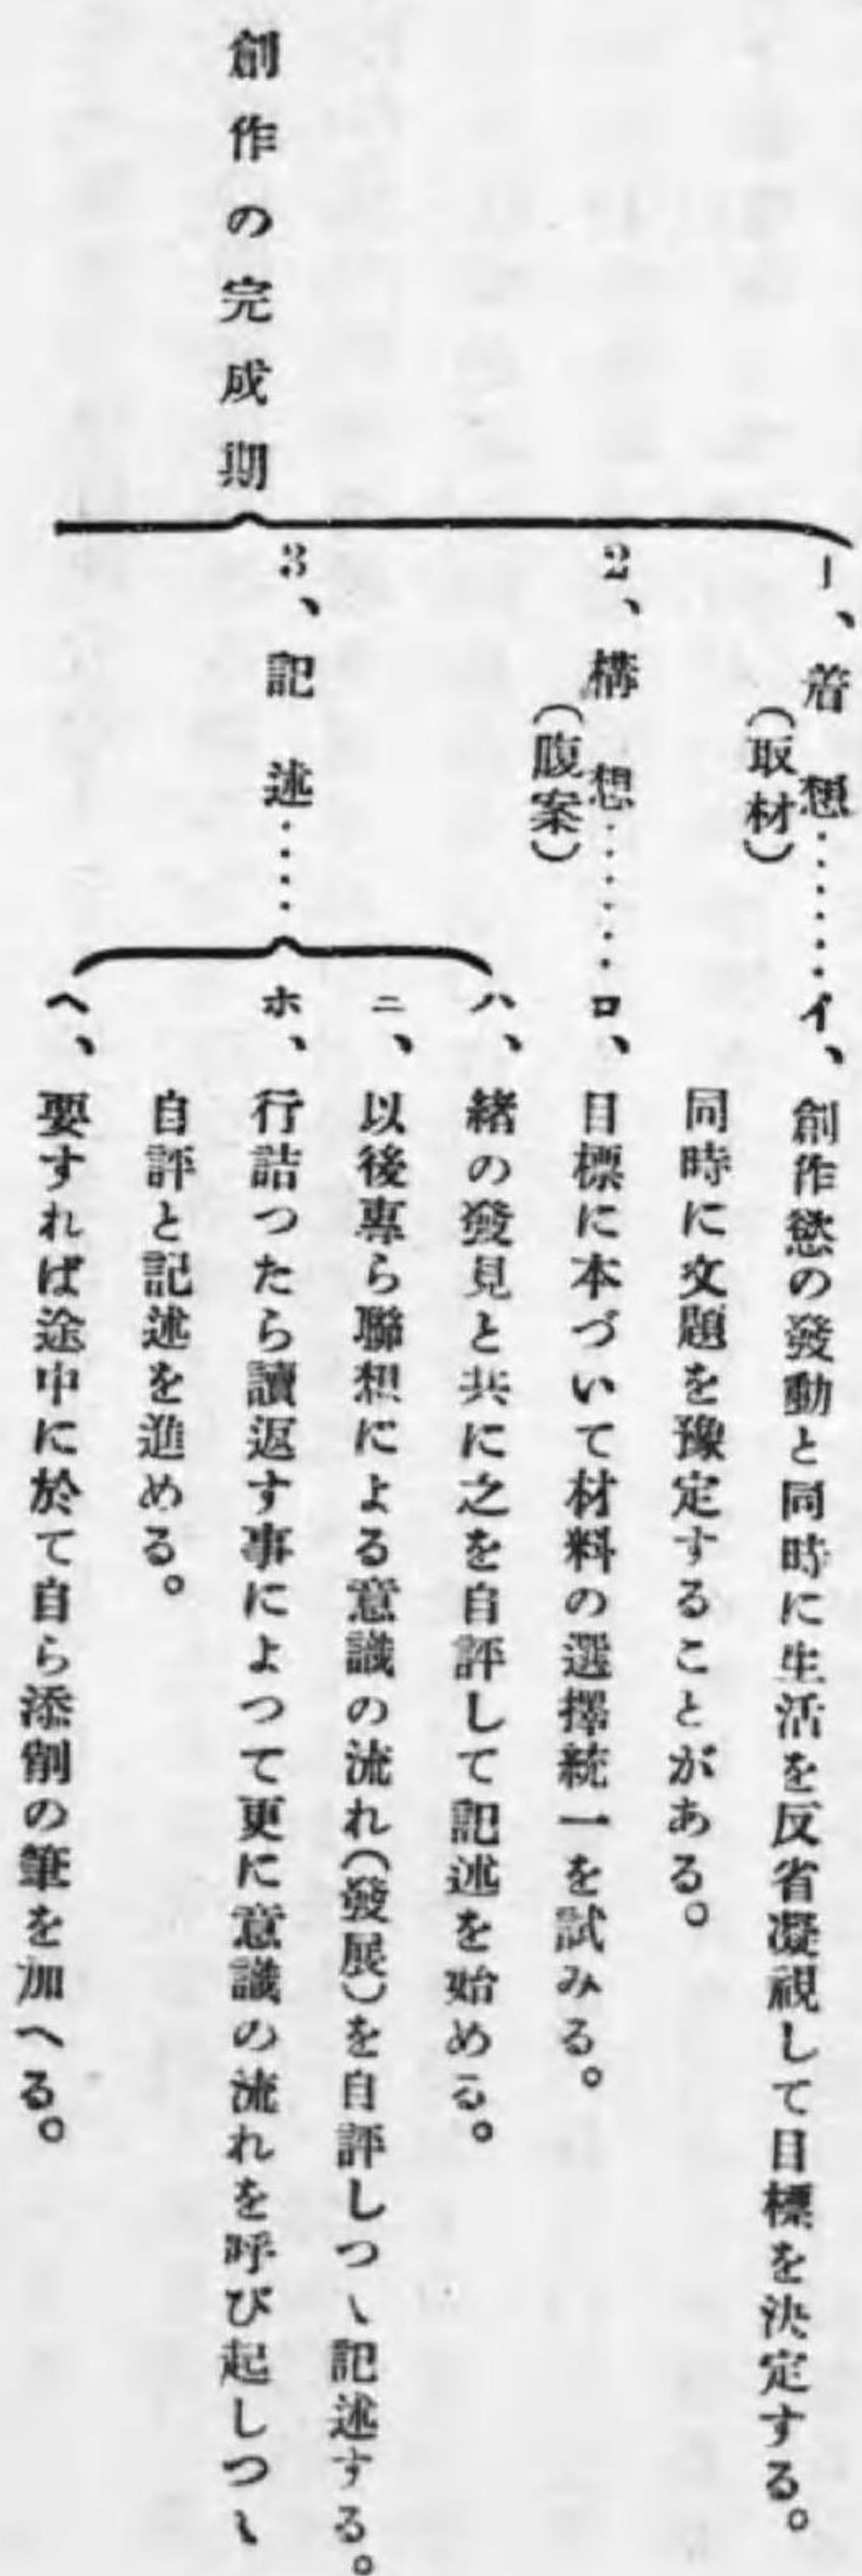 創作の完成期
1、着想……イ、創作慾の發動と同時に生活を反省凝視して目標を決定する。
（取材）
同時に文題を豫定することがある。
2、構想……ロ、目標に本づいて材料の選擇統一を試みる。
（腹案）
3、記述……
ハ、緖の發見と共に之を自評して記述を始める。
ニ、以後專ら聯想による意識の流れ（發展）を自評しつゝ記述する。
ホ、行詰つたら讀返す事によつて更に意識の流れを呼び起しつゝ
自評と記述を進める。
ヘ、要すれば途中に於て自ら添削の筆を加へる。